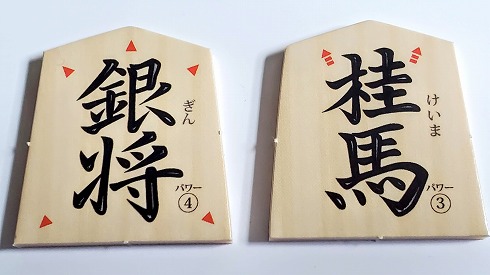 銀将
ぎん
パワー
④
桂馬
けいま
パワー
③